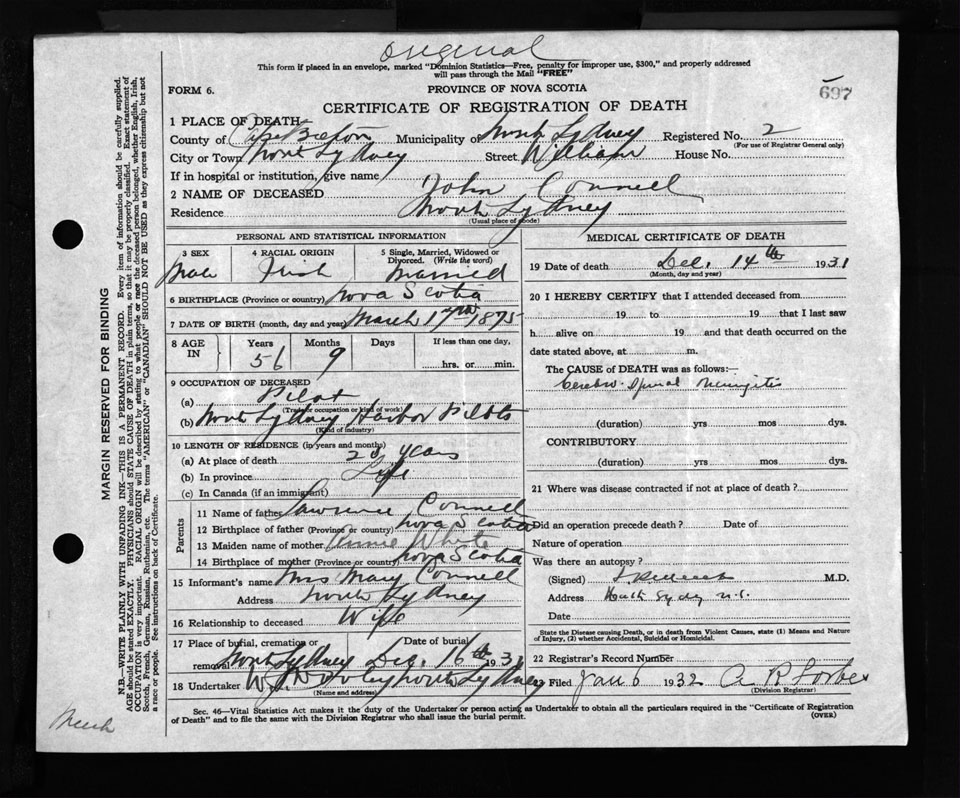 Original
This form if placed in an envelope, marked "Dominion Statistics—Free, penalty for improper use, $300," and properly addressed
will pass through the Mail "FREE"
FORM 6.
PROVINCE OF NOVA SCOTIA
697
CERTIFICATE OF REGISTRATION OF DEATH
1 PLACE OF DEATH
County of Cape Breton Municipality of North Sydney Registered No. 2
(For use of Registrar General only)
City or Town North Sydney Street William House No.
If in hospital or institution, give name
2 NAME OF DECEASED John Connell
Residence North Sydney
(Usual place of abode)
PERSONAL AND STATISTICAL INFORMATION
3 SEX 4 RACIAL ORIGIN 5 Single, Married, Widowed or
Divorced. (Write the word)
Male Irish Married
6 BIRTHPLACE (Province or country) Nova Scotia
7 DATE OF BIRTH (month, day and year) March 17th 1875
8 AGE IN Years Months Days If less than one day,
56 9 hrs. or min.
9 OCCUPATION OF DECEASED
(a) Pilot
(Trade, occupation or kind of work)
(b) North Sydney Harbor Pilots
(Kind of industry)
10 LENGTH OF RESIDENCE (in years and months)
(a) At place of death years
(b) In province Life
(c) In Canada (if an immigrant)
Parents
11 Name of father Lawrence Connell
12 Birthplace of father (Province or country) Nova Scotia
13 Maiden name of mother Annie White
14 Birthplace of mother (Province or country) Nova Scotia
15 Informant's name Mrs Mary Connell
Address North Sydney
16 Relationship to deceased Wife
17 Place of burial, cremation or Date of burial
removal North Sydney Dec. 16th 1931
18 Undertaker Dooley North Sydney
(Name and address)
MEDICAL CERTIFICATE OF DEATH
19 Date of death Dec. 14th 1931
(Month, day and year)
20 I HEREBY CERTIFY that I attended deceased from
19 to 19 that I last saw
h alive on 19 and that death occurred on the
date stated above, at m.
The CAUSE of DEATH was as follows:—
Cerebro-Spinal Meningitis
(duration) yrs mos dys.
CONTRIBUTORY
(duration) yrs mos dys.
21 Where was disease contracted if not at place of death?
Did an operation precede death? Date of
Nature of operation
Was there an autopsy?
(Signed) M.D.
Address North Sydney N.S.
Date
State the Disease causing Death, or in death from Violent Causes, state (1) Means and Nature
of Injury, (2) whether Accidental, Suicidal or Homicidal.
22 Registrar's Record Number
23 Filed Jan 6 1932 A R Forbes
(Division Registrar)
Sec. 46—Vital Statistics Act makes it the duty of the Undertaker or person acting as Undertaker to obtain all the particulars required in the "Certificate of Registration
of Death" and to file the same with the Division Registrar who shall issue the burial permit.
(OVER)
MARGIN RESERVED FOR BINDING
N.B.—WRITE PLAINLY WITH UNFADING INK—THIS IS A PERMANENT RECORD. Every item of information should be carefully supplied.
AGE should be stated EXACTLY. PHYSICIANS should STATE CAUSE OF DEATH in plain terms, so that it may be properly classified. Exact statement of
OCCUPATION is very important. RACIAL ORIGIN will be described by stating to what people or race the deceased person belonged, whether English, Irish,
Scotch, French, German, Russian, Ruthenian, etc. The terms "AMERICAN" or "CANADIAN" SHOULD NOT BE USED as they express citizenship but not
a race or people. See instructions on back of Certificate.